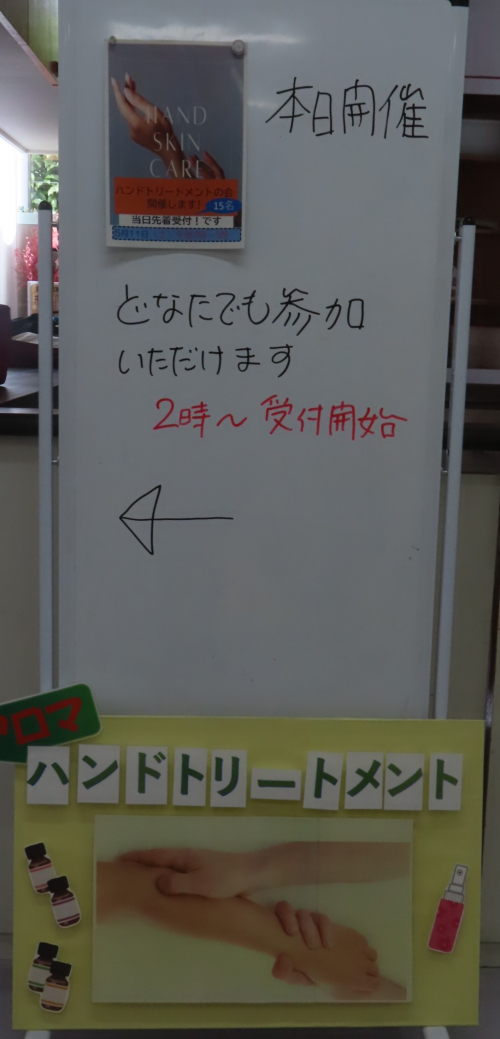 HAND
SKIN
CARE
ハンドトリートメントの会
開催します!
15名
当日先着受付!です
本日開催
どなたでも参加
いただけます
2時〜受付開始
アロマ
ハンドトリートメント